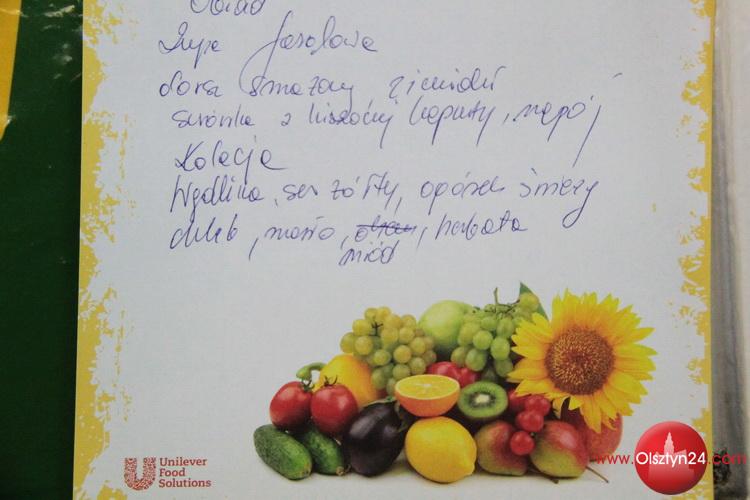 Obiad
Zupa fasolowa
dorsz smażony ziemniaki
surówka z kiszonej kapusty, napój
Kolacja
Wędlina, ser żółty, ogórek świeży
chleb, masło, herbata
miód
Unilever
Food
Solutions
www.Olsztyn24.com